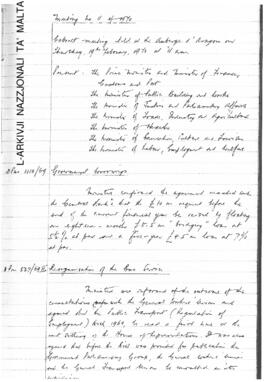 L-ARKIVJI NAZZJONALI TA' MALTA
Meeting No. 11 of 1970
Cabinet meeting held at the Auberge d'Aragon on
Thursday, 19th February, 1970 at 11 a.m.
Present: the Prime Minister and Minister of Finance,
Customs and Port
the Minister of Public Building and Works
the Minister of Justice and Parliamentary Affairs
the Minister of Trade, Industry and Agriculture
the Minister of Health
the Minister of Education, Culture and Tourism
the Minister of Labour, Employment and Welfare
Government borrowings
Ministers confirmed the agreement reached with
the Central Bank that the £10m required before the
end of the current financial year be raised by floating
an eight-year £5.5m "bridging" loan at
at par and a five-year £4.5m loan at 7%
at par.
Reorganisation of the Bus Service
Ministers were informed of the outcome of the
consultations with the General Workers' Union and
agreed that the Public Transport (Regulation of
Employment) Bill, 1969, be read a first time at the
next sitting of the House of Representatives. It was also
agreed that before the Bill was provided for publication the
Government Parliamentary Group, the General Workers' Union
and the General Transport Union be consulted on its